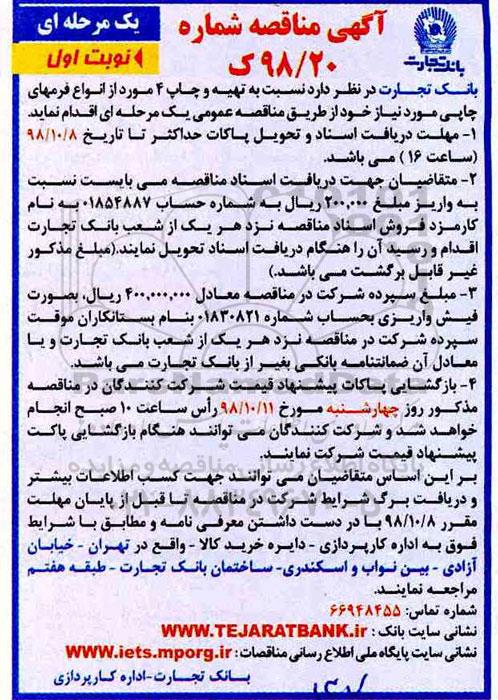 آگهی مناقصه شماره
۹۸/۲۰ ک
یک مرحله ای
نوبت اول
بانک تجارت
بانک تجارت در نظر دارد نسبت به تهیه و چاپ ۴ مورد از انواع فرمهای
چاپی مورد نیاز خود از طریق مناقصه عمومی یک مرحله ای اقدام نماید.
۱- مهلت دریافت اسناد و تحویل پاکات حداکثر تا تاریخ ۹۸/۱۰/۸
(ساعت ۱۶) می باشد.
۲- متقاضیان جهت دریافت اسناد مناقصه می بایست نسبت
به واریز مبلغ ۲۰۰,۰۰۰ ریال به شماره حساب ۰۱۸۵۴۸۸۷ به نام
کارمزد فروش اسناد مناقصه نزد هر یک از شعب بانک تجارت
اقدام و رسید آن را هنگام دریافت اسناد تحویل نمایند.(مبلغ مذکور
غیر قابل برگشت می باشد.)
۳- مبلغ سپرده شرکت در مناقصه معادل ۴۰۰,۰۰۰,۰۰۰ ریال، بصورت
فیش واریزی بحساب شماره ۰۱۸۳۰۸۲۱ بنام بستانکاران موقت
سپرده شرکت در مناقصه نزد هر یک از شعب بانک تجارت و یا
معادل آن ضمانتنامه بانکی بغیر از بانک تجارت می باشد.
۴- بازگشایی پاکات پیشنهاد قیمت شرکت کنندگان در مناقصه
مذکور روز چهارشنبه مورخ ۹۸/۱۰/۱۱ رأس ساعت ۱۰ صبح انجام
خواهد شد و شرکت کنندگان می توانند هنگام بازگشایی پاکت
پیشنهاد قیمت شرکت نمایند.
بر این اساس متقاضیان می توانند جهت کسب اطلاعات بیشتر
و دریافت برگ شرایط شرکت در مناقصه تا قبل از پایان مهلت
مقرر ۹۸/۱۰/۸ با در دست داشتن معرفی نامه و مطابق با شرایط
فوق به اداره کارپردازی - دایره خرید کالا - واقع در تهران - خیابان
آزادی - بین نواب و اسکندری- ساختمان بانک تجارت - طبقه هفتم
مراجعه نمایند.
شماره تماس: ۶۶۹۴۸۴۵۵
نشانی سایت بانک : WWW.TEJARATBANK.ir
نشانی سایت پایگاه ملی اطلاع رسانی مناقصات : www.iets.mporg.ir
بانک تجارت-اداره کارپردازی